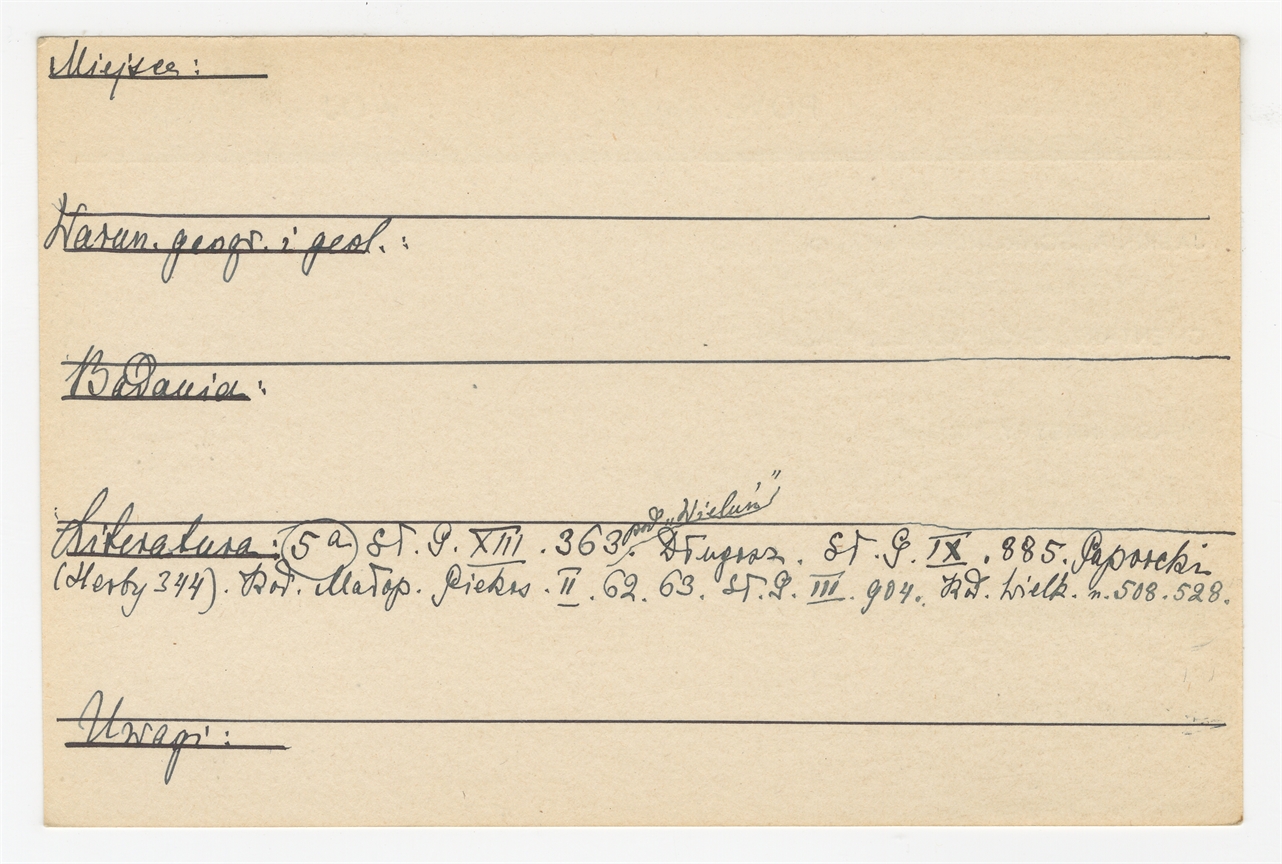 Miejsce:
Warun. geogr. i geol.:
Badania:
pod „Wieluń”
Literatura: 5a Sł. G. XIII. 363. Długosz. Sł. G. IX. 885. Paprocki
(Herby 344). Kod. Małop. Piekos. II. 62. 63. Sł. G. III. 904. Kd. Wielk. n. 508. 528.
Uwagi: